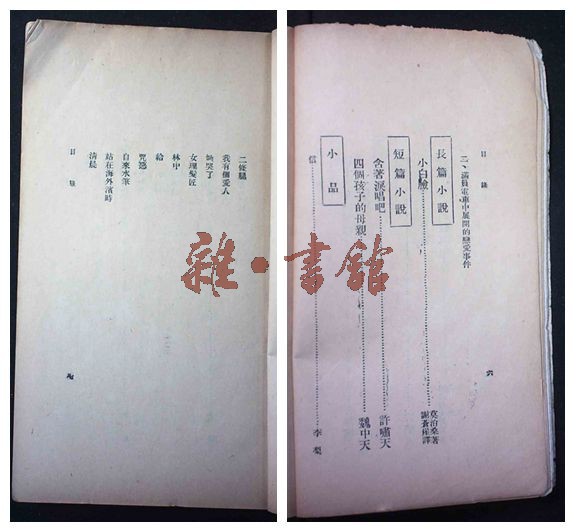 目錄
六
二、滿員電車中展開的戀愛事件
長篇小說
小白臉……莫泊桑著
譯
短篇小說
含著淚唱吧……許嘯天
四個孩子的母親……魏中天
小品
信……李梨
二條腿
我有個愛人
她哭了
女理髮匠
林中
給
自來水筆
站在海外濱時
清晨
目錄
七
雜·書館